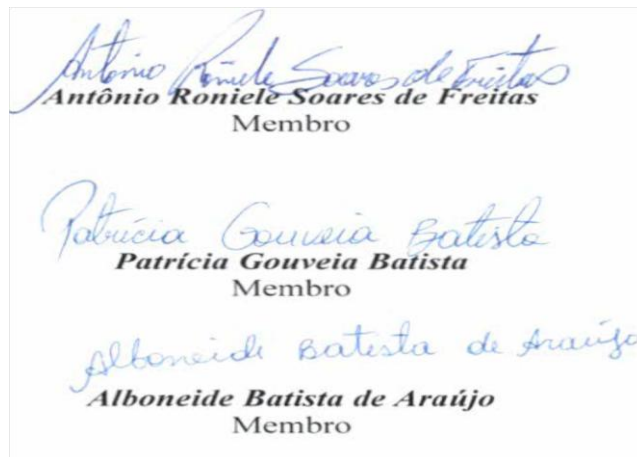 Antônio Roniele Soares de Freitas
Antônio Roniele Soares de Freitas
Membro
Patrícia Gouveia Batista
Patrícia Gouveia Batista
Membro
Alboneide Batista de Araújo
Alboneide Batista de Araújo
Membro